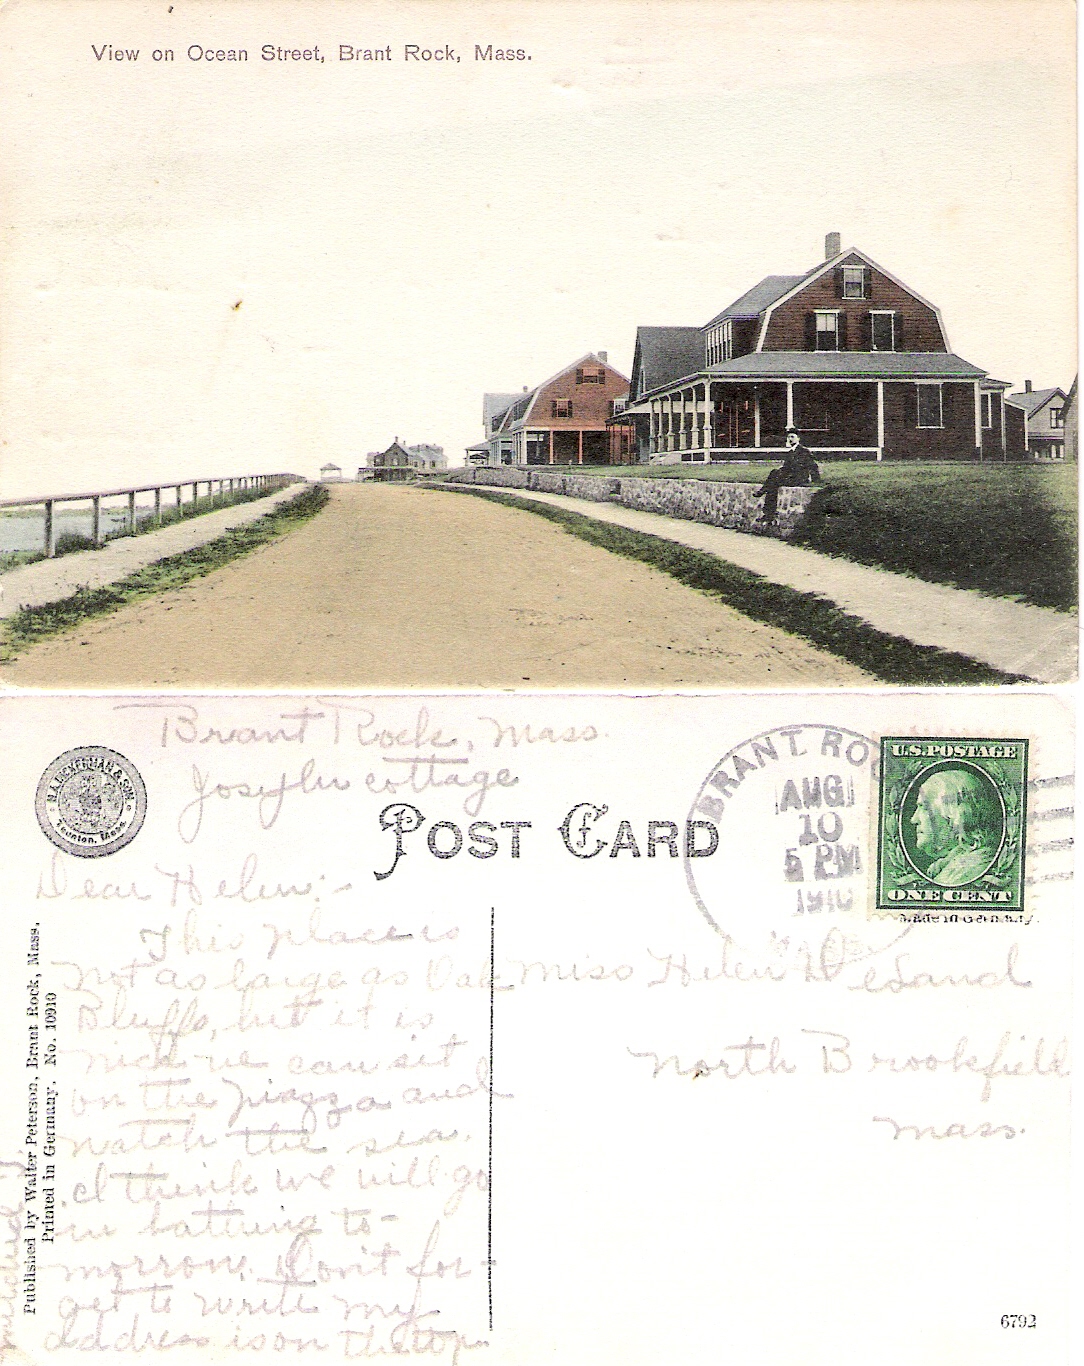 View on Ocean Street, Brant Rock, Mass.
Brant Rock, Mass.
Joseph cottage
H.A. DICKERMAN & SON
Taunton, Mass.
POST CARD
BRANT ROC
AUG
10
5 PM
1910
U.S. POSTAGE
ONE CENT
Made in Germany.
Dear Helen:-
This place is
not as large as Oak
Bluffs, but it is
nice we can sit
on the piazza and
watch the sea.
I think we will go
in bathing to-
morrow. Don't for-
get to write my
address is on the top
Miss Helen DeLand
North Brookfield
Mass.
Published by Walter Peterson, Brant Rock, Mass.
Printed in Germany. No. 10910
6792